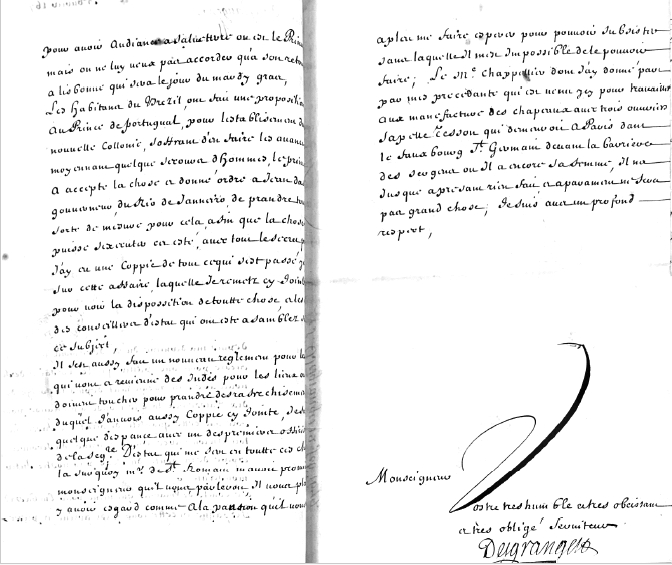 pour avoir Audiance a Salveterre ou est le Prin
mais on ne luy veux pas accorder qu'a son reto
a lisbonne qui sera le jour du mardy gras,
Les habitans du Brezil, ont fait une proposition
Au Prince de portugual, pour l'establissement d
nouvelle Collonie, s'offrant d'en faire les avanc
moyennant quelque secours d'hommes, le prin
A accepte la chose a donné ordre a Jean da
gouverneur du Rio de Janneiro, de prandre to
sorte de mesure pour cela, afin que la chose
puisse s'executer cet esté, avec tout le secret p
J'ay eu une Coppie de tout ce qui s'est passé
sur cette affaire, laquelle Je remetz cy Joint
pour voir la dispossition de toutte chose, a les
des conseillers d'estat qui ont esté asamblez s
ce subject,
Il s'est aussy fait un nouveau reglement pour la
qui vont a revienne des Indes pour les lieux o
doivent toucher pour prandre des rafrechiseme
duquel J'anvois aussy Coppie cy Jointe, J'esté
quelque despance avec un des premiers offici
de la seg.re D'estat qui me sert en toutte ces ch
la sur quoy m.r de S.t Romain m'avoit prom
monseigneur qu'il vous parleroit, Il vous pl
y avoir esgard comme A la pantion qu'il vous
a pleu me faire esperer pour pouvoir subsister
sans laquelle Il m'est Impossible de le pouvoir
faire; Le M.e chappellier dont J'ay donné par
par mes precedante qui est venu Jcy pour travailler
aux manefacture des chapeaux avec trois ouvriers
s'apelle Cesson qui demeuroit a Paris dans
le faux bourg S.t Germain devant la barriere
des sergens ou Il a encore sa femme, Il n'a
Jusque apresant rien fait et aparamment ne fera
pas grand chose; Je suis avec un profond
respect,
Monseigneur
Vostre tres humble et tres obeissant
et tres obligé serviteur
Desgranges